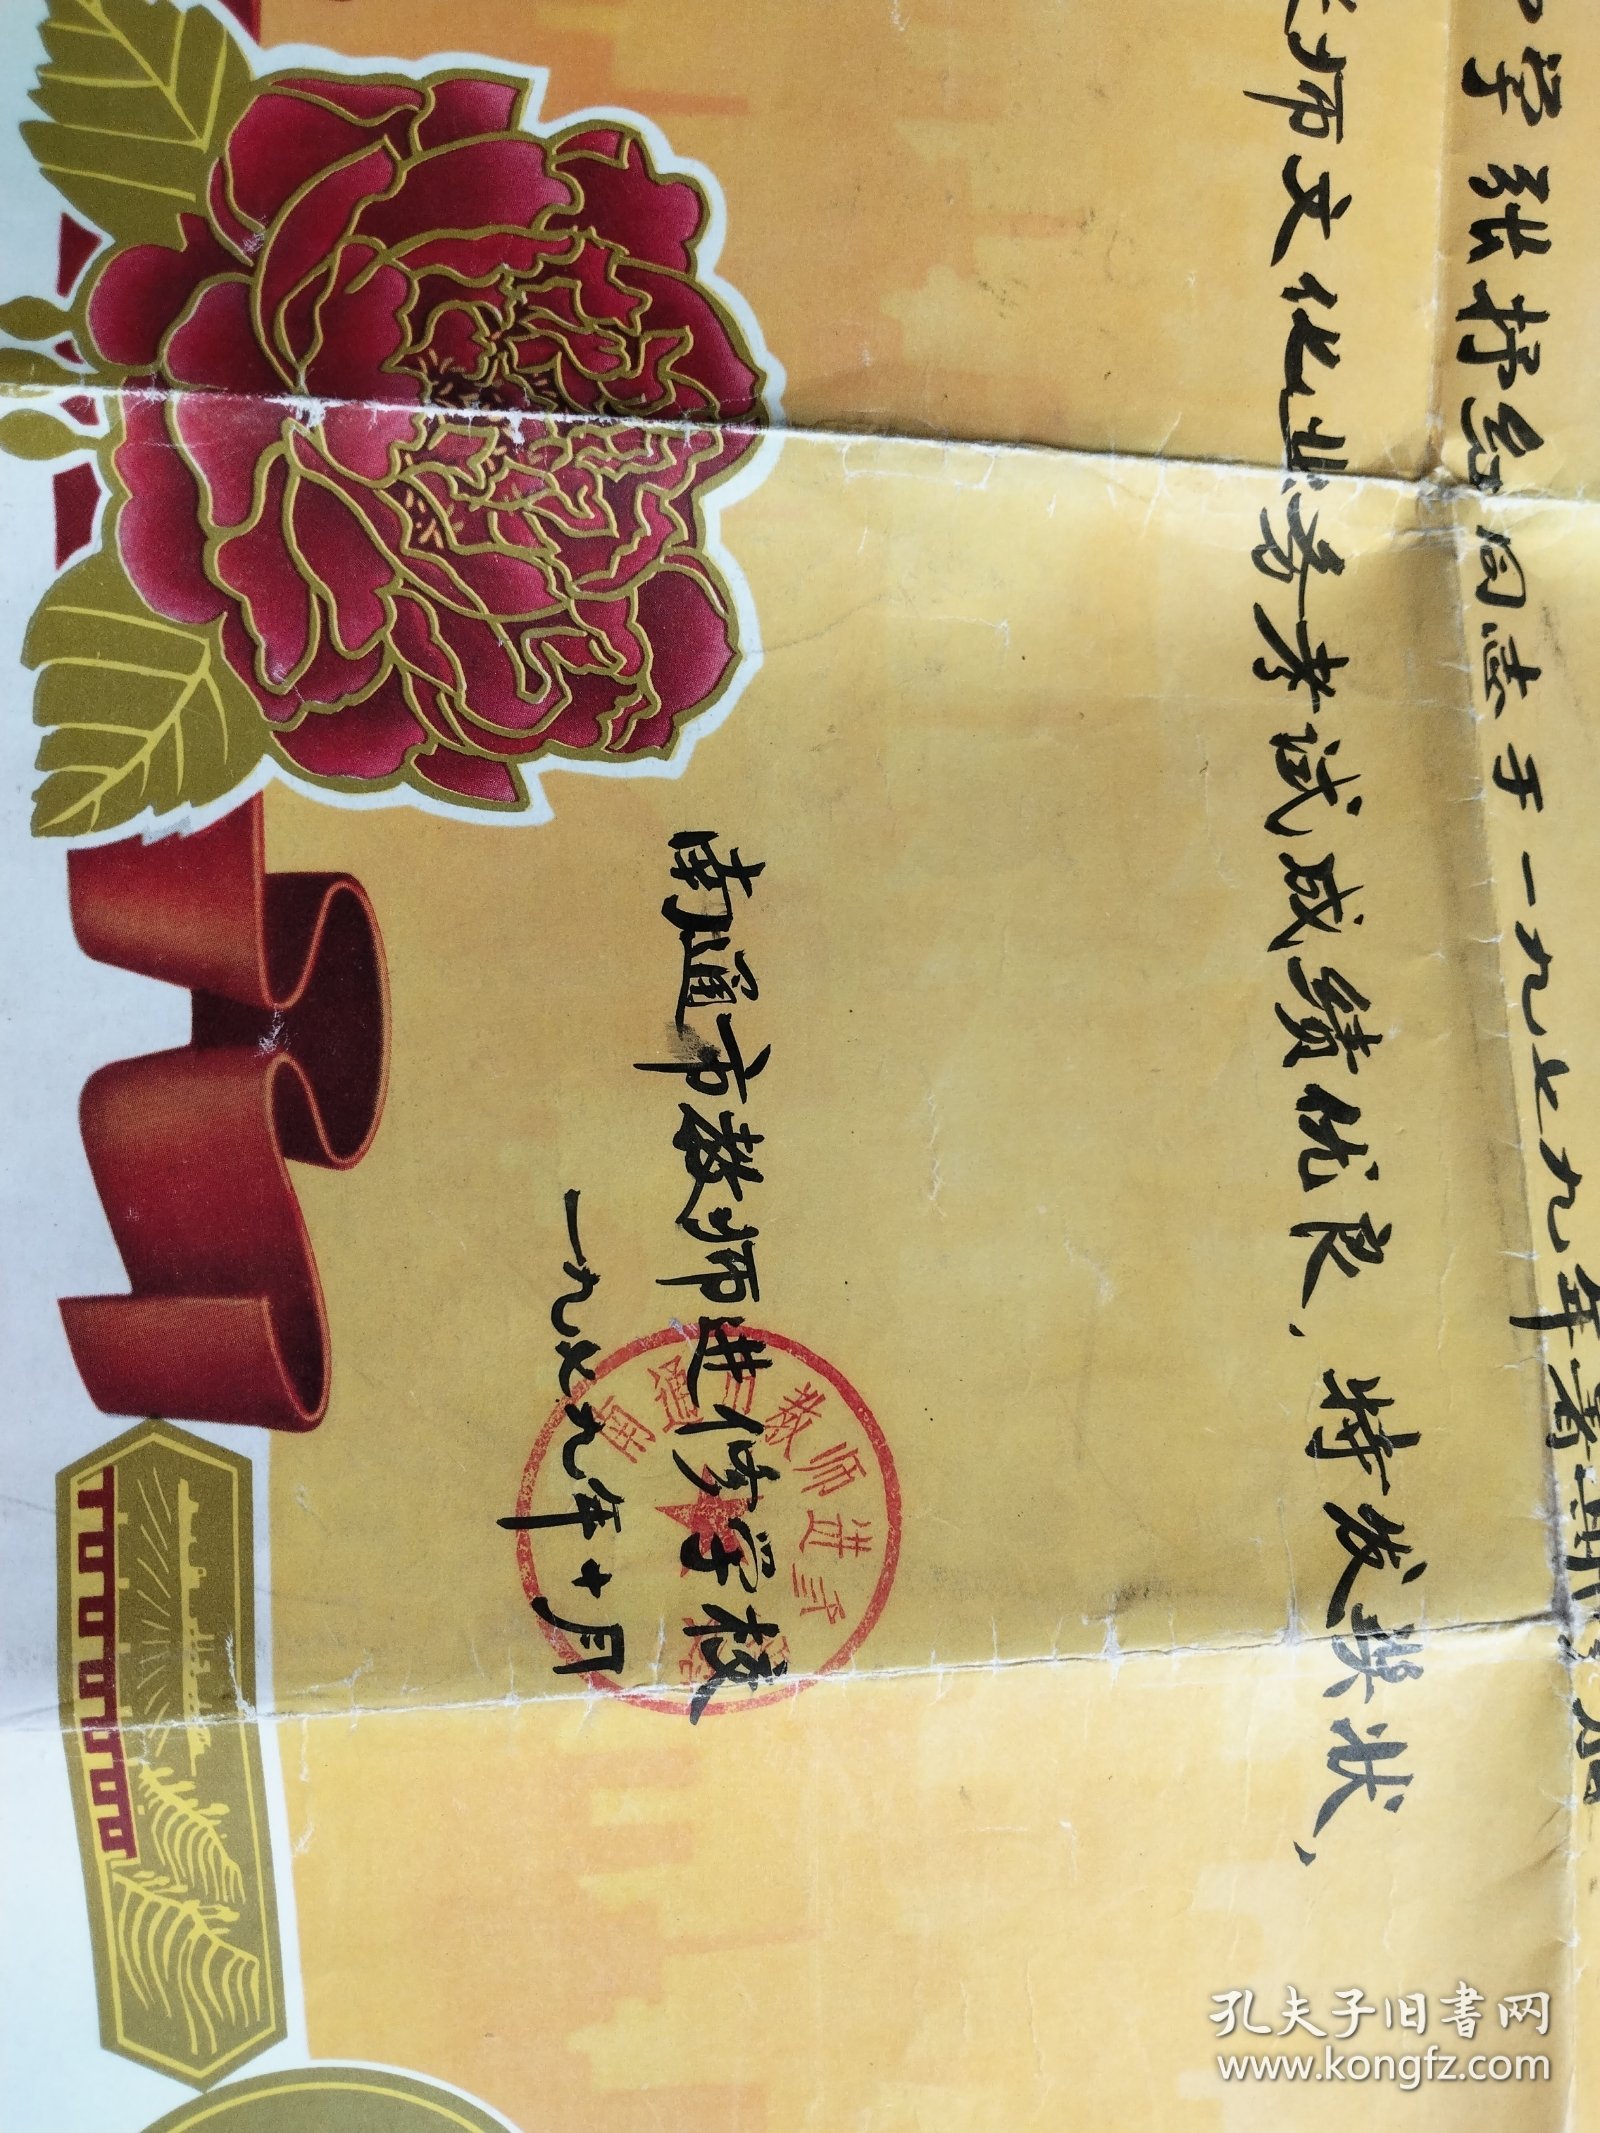 学张抒红同志于一九七九年暑期参加
师文化业务考试成绩优良、特发奖状、
南通市教师进修学校
一九七九年十月
南通市教师进
孔夫子旧书网
www.kongfz.com